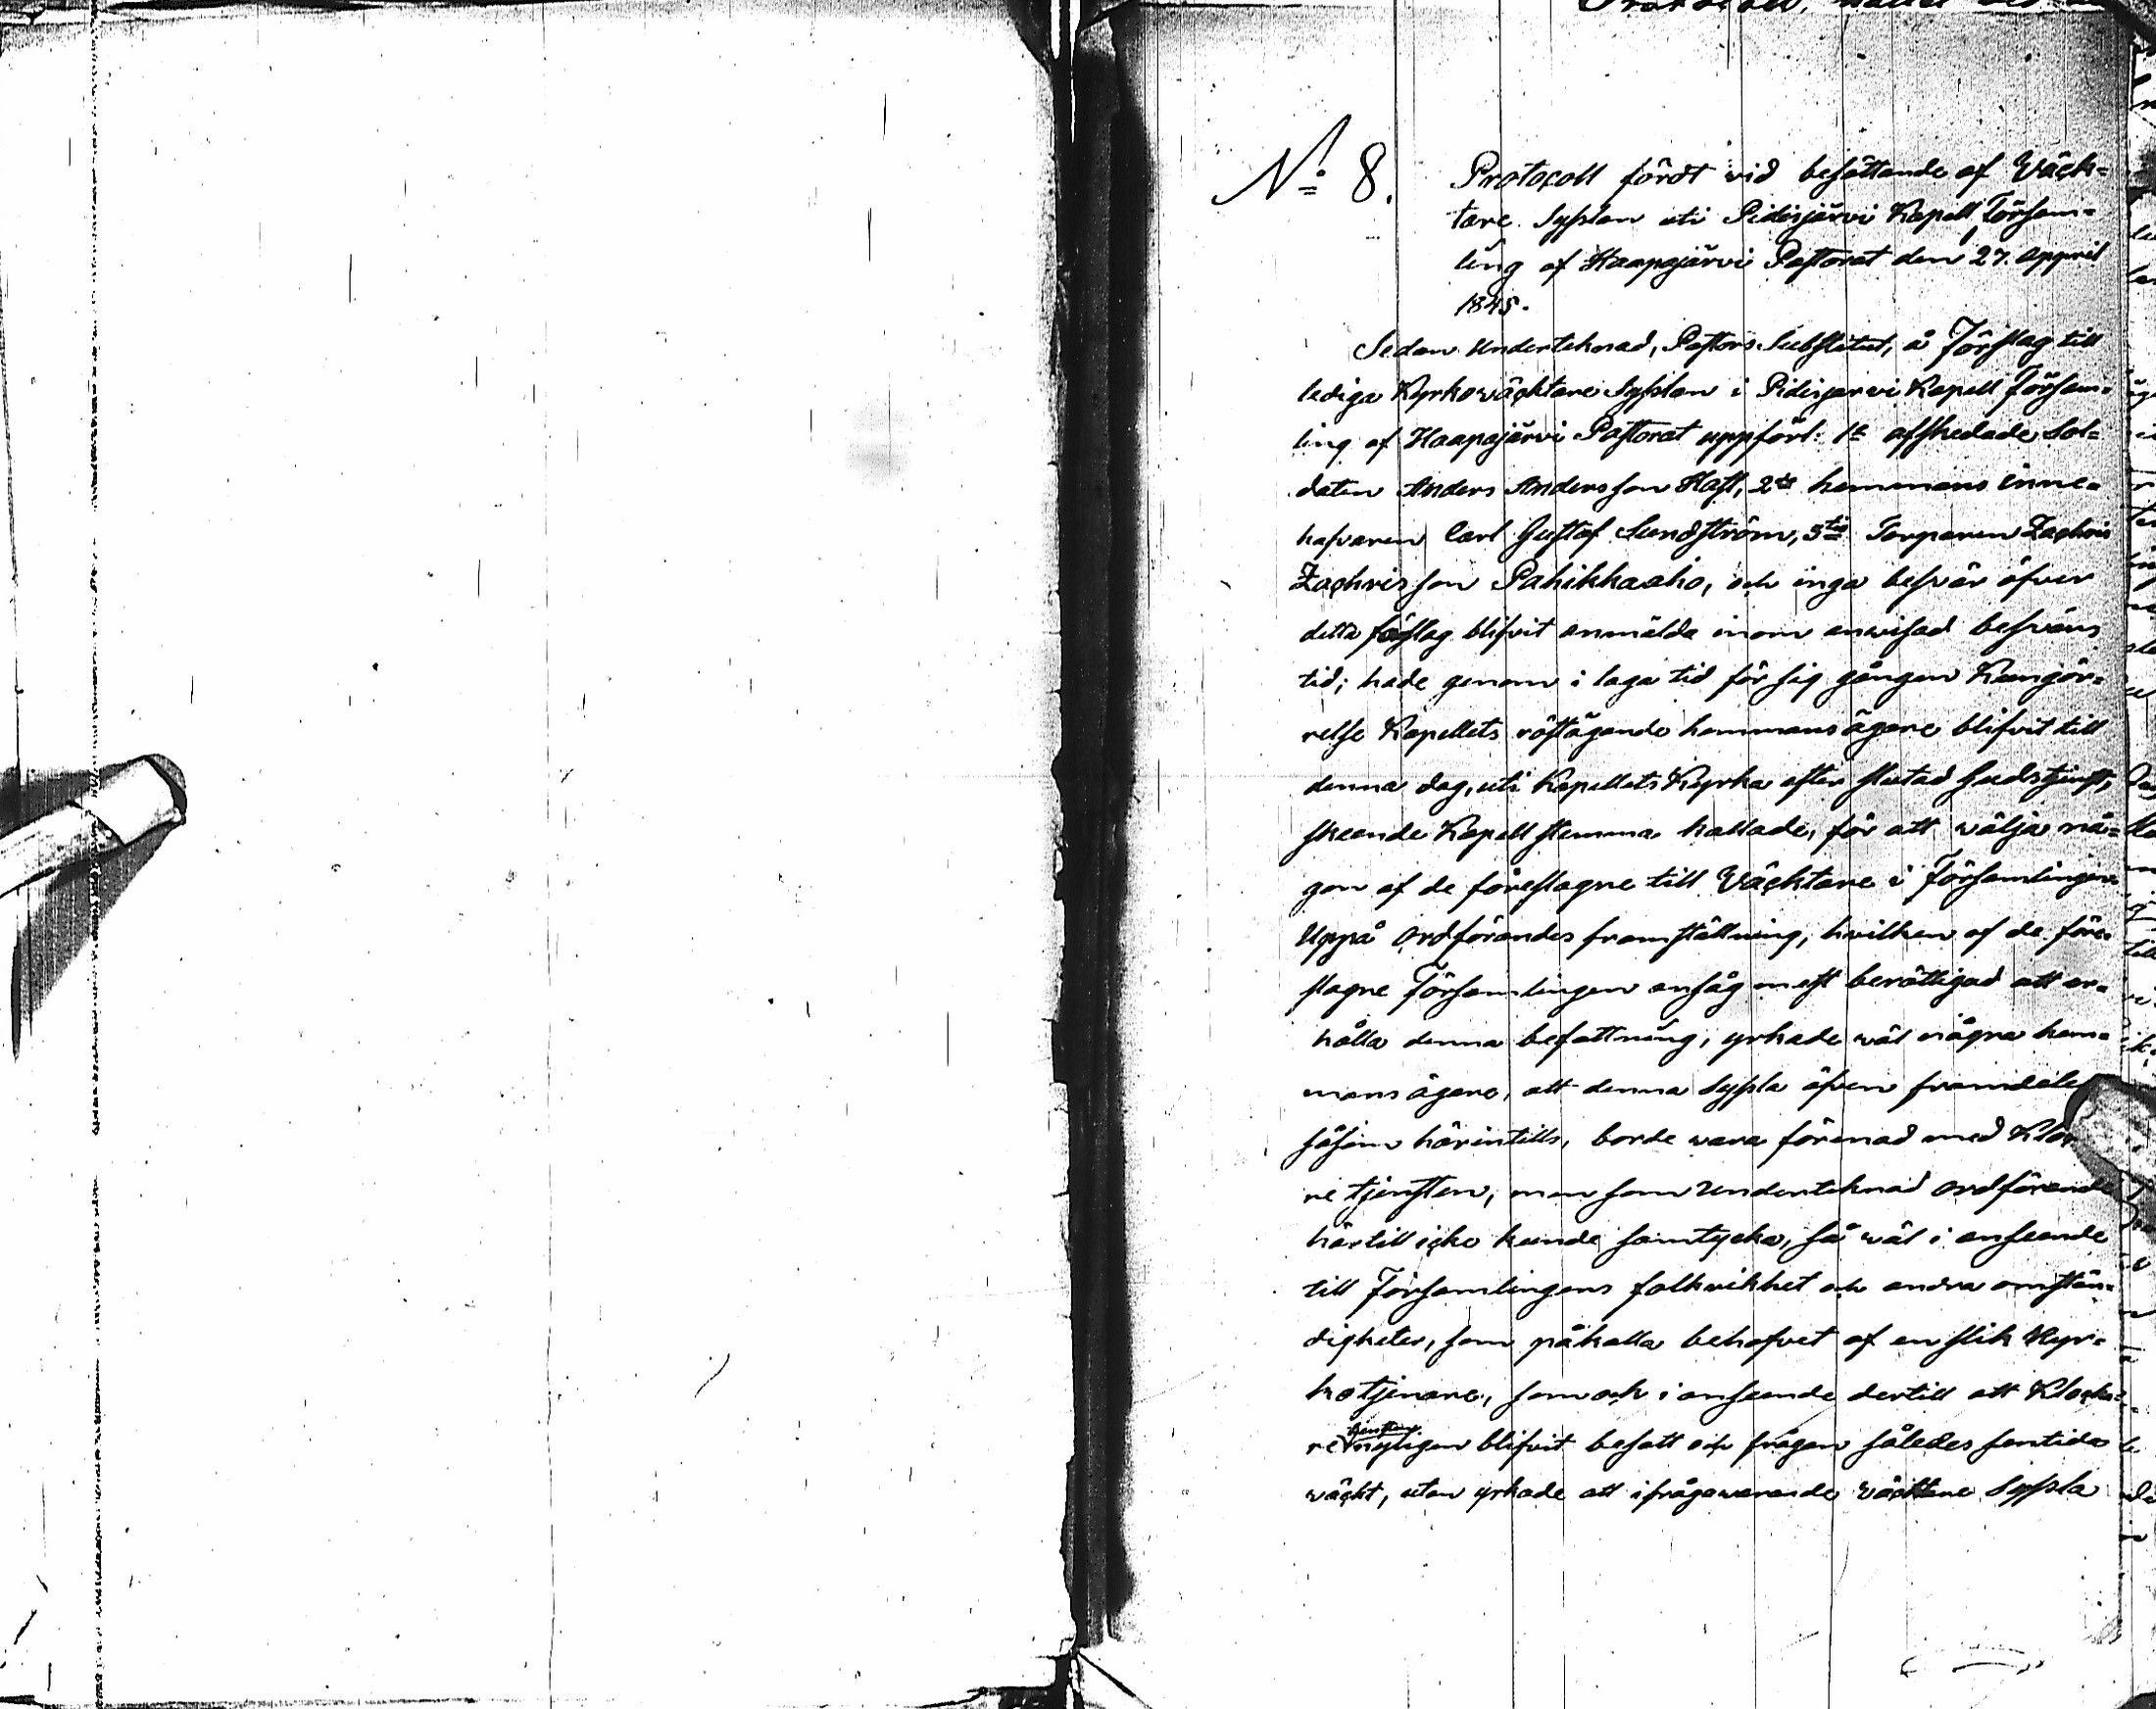 No 8.
Protocoll fördt vid besättande af Väck-
tare Sysslan uti Pidisjärvi Kapell Försam-
ling af Haapajärvi Pastorat den 27. Appril
1845.
Sedan undertecknad, Pastors Substitut, å Förslag till
lediga Kyrkowäcktare Sysslan i Pidisjärvi Kapell Försam-
ling af Haapajärvi Pastorat uppfört: 1o afskedade Sol-
daten Anders Andersson Hast, 2do hemmans inne-
hafvaren Carl Gustaf Sundström, 3tio Torparen Zachris
Zachrisson Pahikkaaho, och inga besvär öfver
detta förslag blifvit anmälda inom anvisad besvärs
tid; hade genom i laga tid för sig gången Kungör-
relse Kapellets röstägande hemmansägare blifvit till
denna dag, uti Kapellets Kyrka efter slutad Gudstjenst,
skeende Kapellstemma kallade, för att wälja nå-
gon af de föreslagne till Väcktare i Församlingen.
Uppå Ordförandes framställning, hvilken af de före-
slagne Församlingen ansåg mest berättigad att er-
hålla denna befattning, yrkade wäl några hem-
mansägare, att denna Syssla äfven framdeles
såsom härintills, borde wara förenad med
re tjensten, men som undertecknad Ordförande
härtill icke kunde samtycka, så wäl i anseende
till Församlingens folkrikhet och andra omstän-
digheter, som påkalla behofvet af en slik Kyr-
kotjenare, som och i anseende dertill att Klocka-
re tjensten nyligen blifvit besatt och frågan således sentida
wäckt, utan yrkade att ifrågawarande Väcktare Syssla